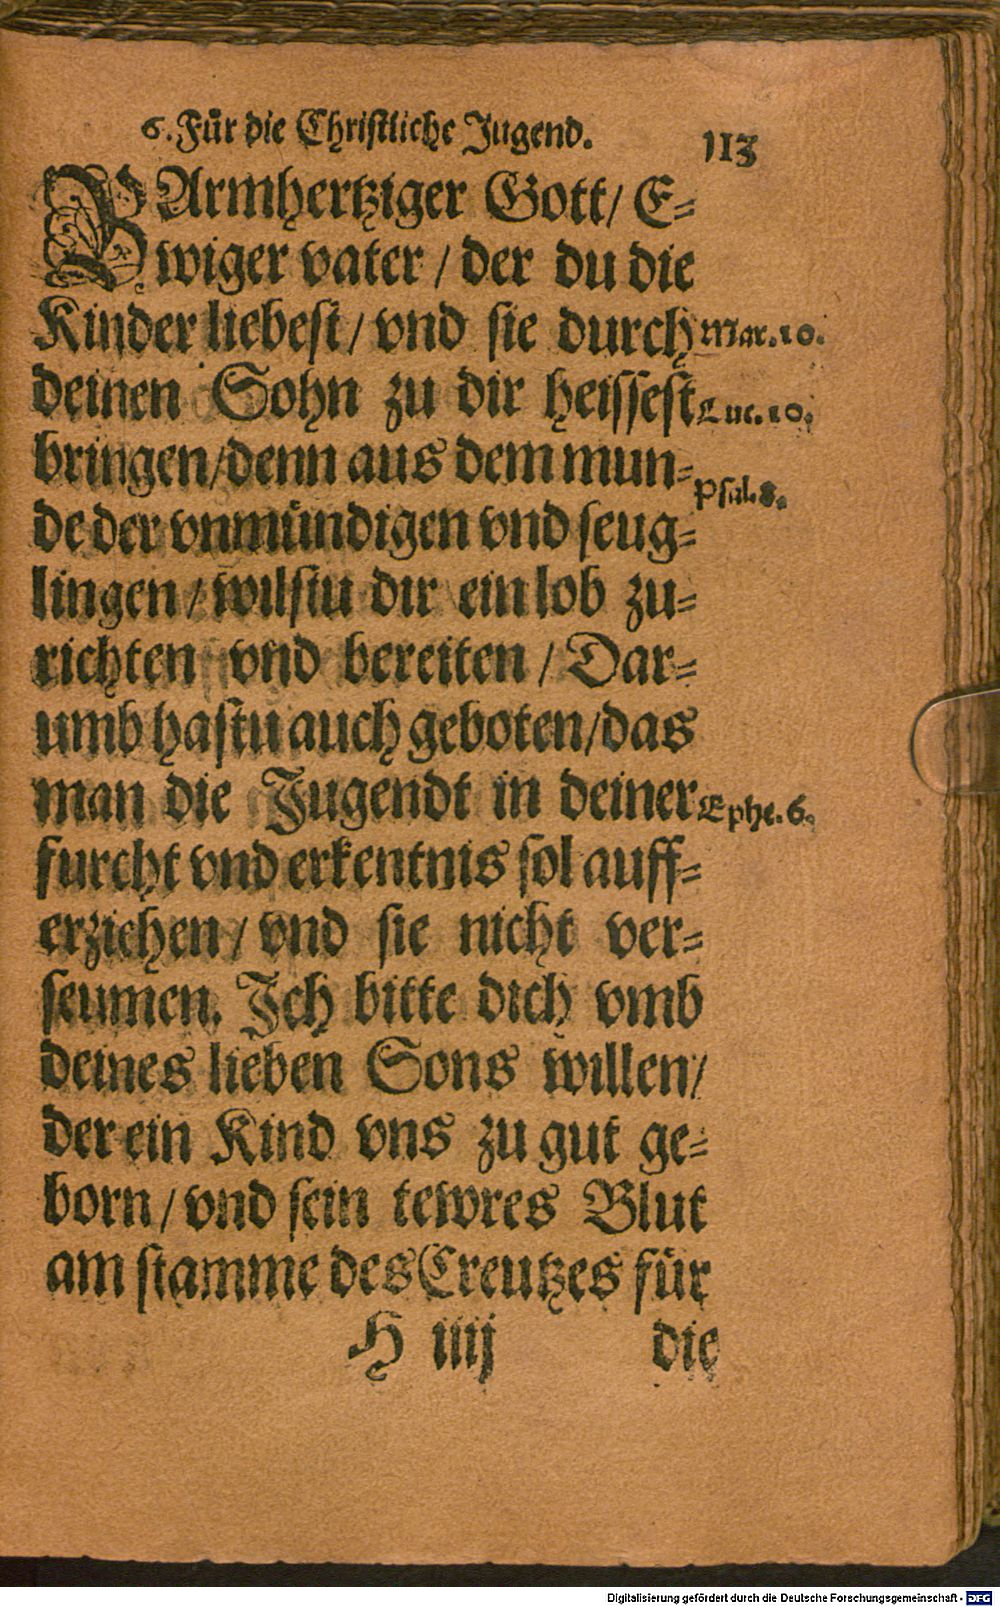 6. Fuͤr die Christliche Jugend. 113
BArmhertziger Gott/ E⸗
wiger vater / der du die
Kinder liebest/ vnd sie durch Mar. 10.
deinen Sohn zu dir heissest Luc. 10.
bringen/denn aus dem mun⸗ Psal. 8.
de der vnmuͤndigen vnd seug⸗
lingen / wilstu dir ein lob zu⸗
richten vnd bereiten / Dar⸗
umb hastu auch geboten/das
man die Jugendt in deiner Ephe. 6.
furcht vnd erkentnis sol auff⸗
erziehen / vnd sie nicht ver⸗
seumen. Jch bitte dich vmb
deines lieben Sons willen/
der ein Kind vns zu gut ge⸗
born / vnd sein tewres Blut
am stamme des Creutzes fuͤr
H iiij die
Digitalisierung gefördert durch die Deutsche Forschungsgemeinschaft - DFG